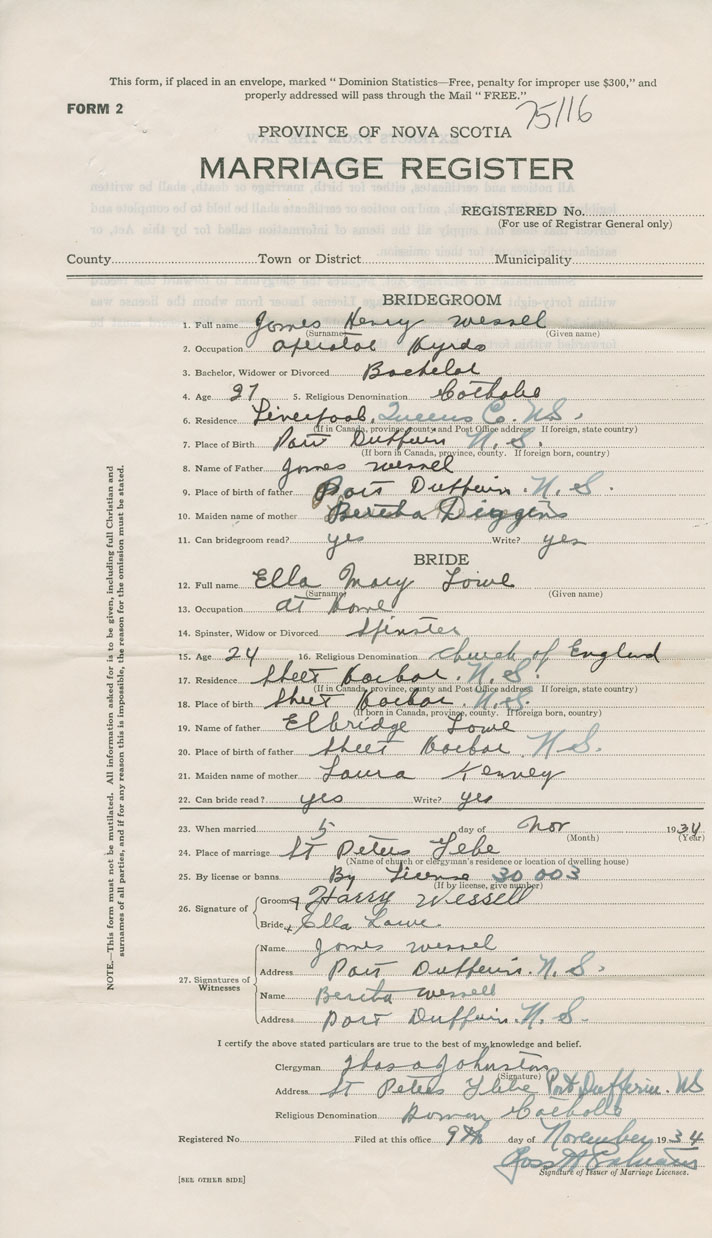 This form, if placed in an envelope, marked " Dominion Statistics—Free, penalty for improper use $300," and
properly addressed will pass through the Mail " FREE."
FORM 2
75116
PROVINCE OF NOVA SCOTIA
MARRIAGE REGISTER
REGISTERED No.
(For use of Registrar General only)
County Town or District Municipality
BRIDEGROOM
1. Full name James Henry Wessel
(Surname) (Given name)
2. Occupation Operator Hydro
3. Bachelor, Widower or Divorced Bachelor
4. Age 27 5. Religious Denomination Catholic
6. Residence Liverpool, Queens Co. N.S.
(If in Canada, province, county and Post Office address. If foreign, state country)
7. Place of Birth Port Dufferin N.S.
(If born in Canada, province, county. If foreign born, country)
8. Name of Father James Wessel
9. Place of birth of father Port Dufferin. N.S.
10. Maiden name of mother Bertha Diggins
11. Can bridegroom read? yes Write? yes
BRIDE
12. Full name Ella Mary Lowe
(Surname) (Given name)
13. Occupation at Home
14. Spinster, Widow or Divorced Spinster
15. Age 24 16. Religious Denomination Church of England
17. Residence Sheet Harbor. N.S.
(If in Canada, province, county and Post Office address. If foreign, state country)
18. Place of birth Sheet Harbor. N.S.
(If born in Canada, province, county. If foreign born, country)
19. Name of father Elbridge Lowe
20. Place of birth of father Sheet Harbor N.S.
21. Maiden name of mother Laura Kenney
22. Can bride read? yes Write? yes
23. When married 5 day of Nov 1934
(Month) (Year)
24. Place of marriage St Peters Glebe
(Name of church or clergyman's residence or location of dwelling house)
25. By license or banns By License 30003
(If by license, give number)
26. Signature of Groom Harry Wessell
Bride Ella Lowe.
27. Signatures of Witnesses
Name James Wessel
Address Port Dufferin. N.S.
Name Bertha Wessell
Address Port Dufferin. N.S.
I certify the above stated particulars are true to the best of my knowledge and belief.
Clergyman Chas a Johnston
(Signature)
Address St Peters Glebe Port Dufferin. NS
Religious Denomination Roman Catholic
Registered No. Filed at this office 9th day of November 1934
Signature of Issuer of Marriage Licenses.
[SEE OTHER SIDE]
NOTE.—This form must not be mutilated. All information asked for is to be given, including full Christian and
surnames of all parties, and if for any reason this is impossible, the reason for the omission must be stated.